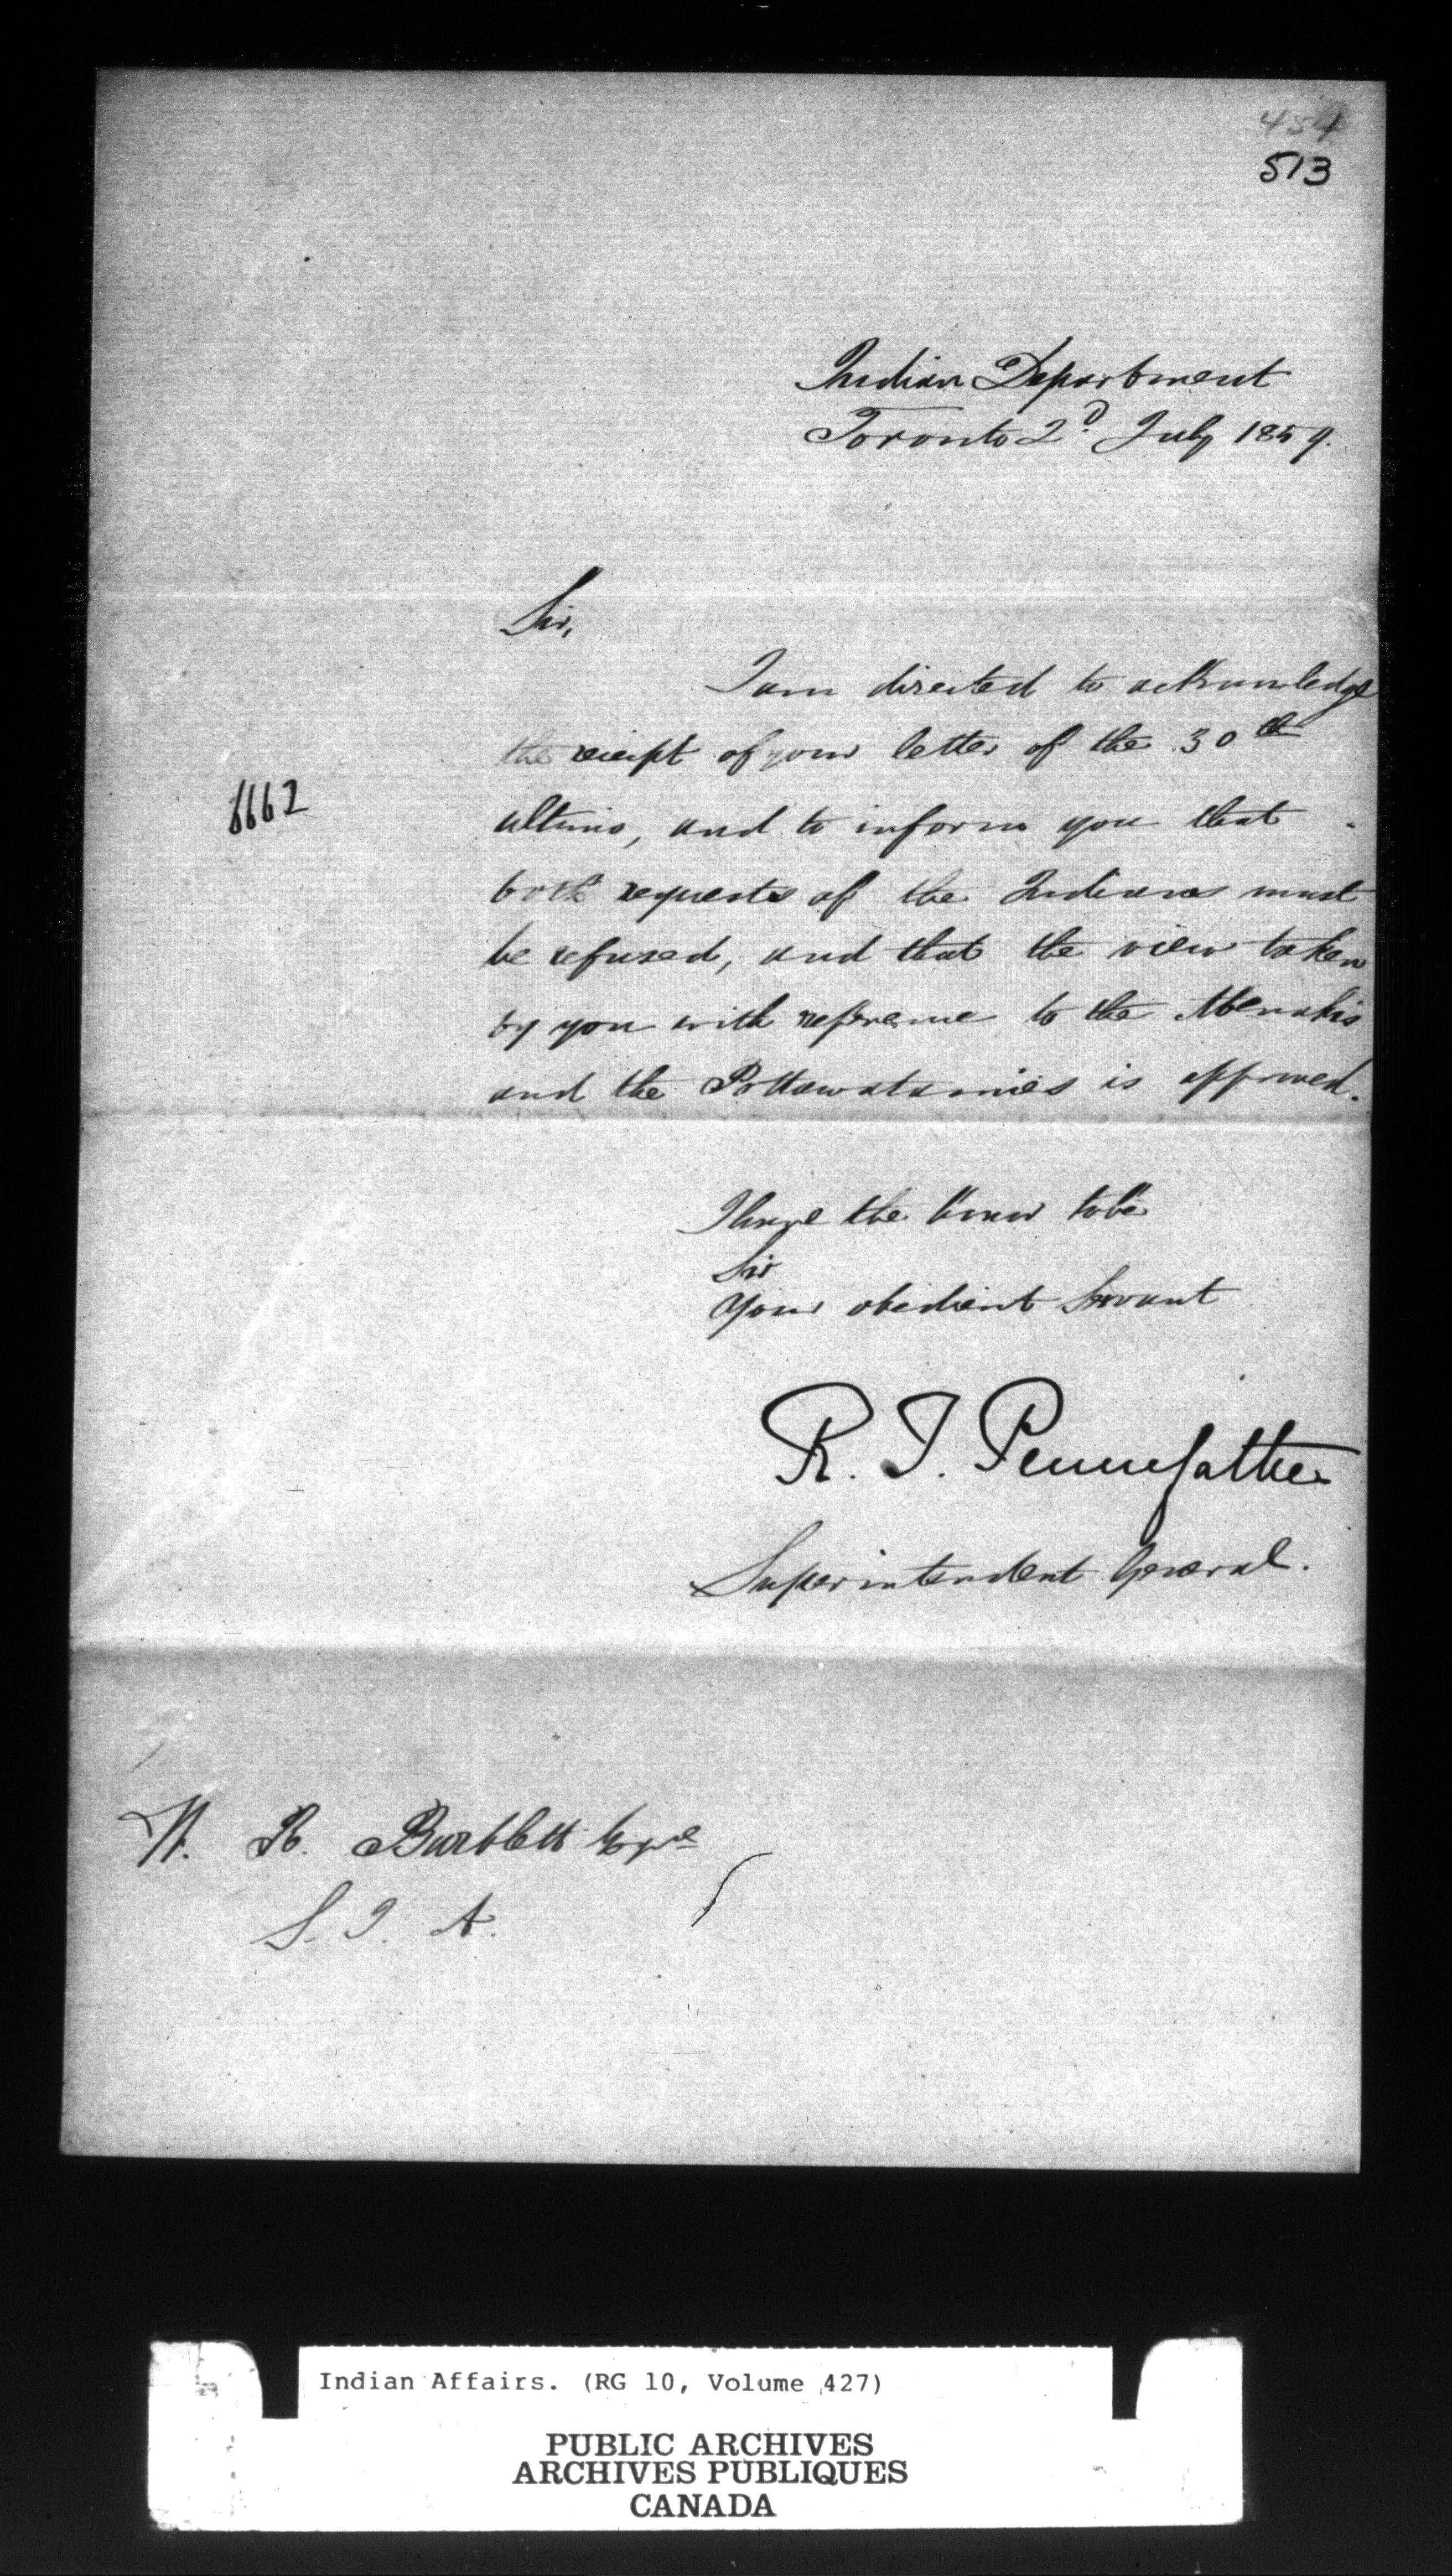 454
513
Indian Department
Toronto 2d July 1859.
Sir,
I am directed to acknowledge
the reciept of your letter of the 30th
ultimo, and to inform you that
both requests of the Indians must
be refused, and that the view taken
by you with reference to the Abenakis
and the Pottawatamies is approved.
6662
I have the honor to be
Sir
Your obedient Servant
R. T. Pennefather
Superintendent General.
W. R. Bartlett Esqre
S. I. A.
Indian Affairs. (RG 10, Volume 427)
PUBLIC ARCHIVES
ARCHIVES PUBLIQUES
CANADA